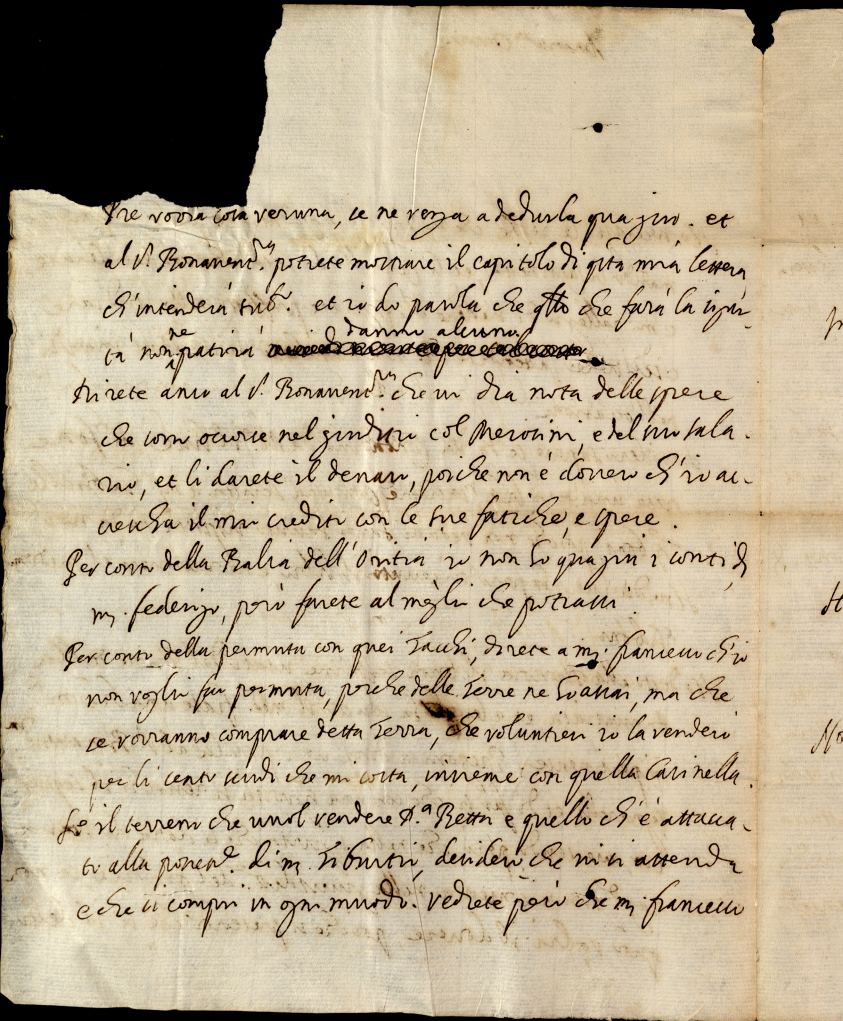 vorrà cosa veruna, se ne venga a dedurla qua giu. et
al S.r Bonavent.ra potrete mostrare il capitolo di q̃sta mia lettera,
ch'intenderà et io do parola che q̃llo che farà la
tà non ne patirà danno alcuno
Direte anco al S.r Bonavent.ra che vi dia nota delle spese
che sono occorse nel giuditio col Merosini, e del suo sala-
rio, et li darete il denaro, poiche non è dovere ch'io ac-
crescha il mio credito con le sue fatiche, e spese.
Per conto della Balia dell' io non ho qua giu i conti di
m. federigo, però farete al meglio che potrassi.
Per conto della permuta con quei Sacchi, direte a m. francesco ch'io
non voglio far permuta, perche delle Terre ne ho assai, ma che
se vorranno comprare detta Terra, che voluntieri io la venderò
per li cento scudi che mi costa, insieme con quella Casinella.
Se il terreno che vuol vendere D.a Betta e quello ch'è attacca-
to alla di m. Tiburtio, desidero che vi si attenda
e che si compri in ogni muodo. vedrete però che m. francesco